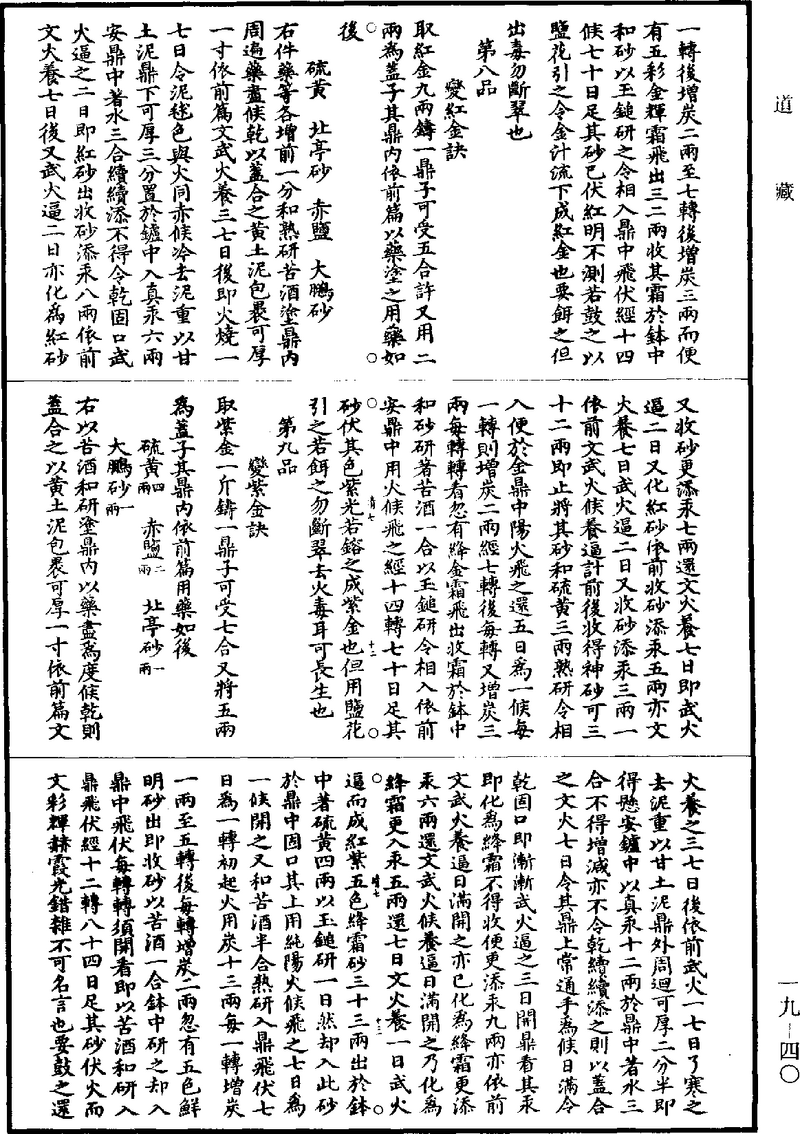 道藏
一轉後增炭二兩至七轉後增炭三兩而便
有五彩金輝霜飛出三二兩收其霜於鉢中
和砂以玉鎚研之令相入鼎中飛伏經十四
候七十日足其砂已伏紅明不測若鼓之以
鹽花引之令金汁流下成紅金也要餌之但
出毒勿斷翠也
第八品
變紅金訣
取紅金九兩鑄一鼎子可受五合許又用二
兩為蓋子其鼎內依前篇以藥塗之用藥如
後
硫黃 北亭砂 赤鹽 大鵬砂
右件藥等各增前一分和熟研苦酒塗鼎內
周遍藥盡候乾以蓋合之黃土泥包裹可厚
一寸依前篇文武火養三七日後即火燒一
七日令泥毬色與火同赤候冷去泥重以甘
土泥鼎下可厚三分置於鑪中入真汞六兩
安鼎中著水三合續續添不得令乾固口武
火逼之二日即紅砂出收砂添汞八兩依前
文火養七日後又武火逼二日亦化為紅砂
又收砂更添汞七兩還文火養七日即武火
逼二日又化紅砂依前收砂添汞五兩亦文
火養七日武火逼二日又收砂添汞三兩一
依前文武火候養逼計前後收得神砂可三
十二兩即止將其砂和硫黃三兩熟研令相
入便於金鼎中陽火飛之還五日為一候每
一轉則增炭二兩經七轉後每轉又增炭三
兩每轉轉看忽有絳金霜飛出收霜於鉢中
和砂研著苦酒一合以玉鎚研令相入依前
安鼎中用火候飛之經十四轉七十日足其
砂伏其色紫光若鎔之成紫金也但用鹽花
引之若餌之勿斷翠去火毒耳可長生也
第九品
變紫金訣
取紫金一斤鑄一鼎子可受七合又將五兩
為蓋子其鼎內依前篇用藥如後
硫黃四兩 赤鹽二兩 北亭砂一兩
大鵬砂一兩
右以苦酒和研塗鼎內以藥盡為度候乾則
蓋合之以黃土泥包裹可厚一寸依前篇文
火養之三七日後依前武火一七日了寒之
去泥重以甘土泥鼎外周迴可厚二分半即
得懸安鑪中以真汞十二兩於鼎中著水三
合不得增減亦不令乾續續添之則以蓋合
之文火七日令其鼎上常通手為候日滿令
乾固口即漸漸武火逼之三日開鼎看其汞
即化為絳霜不得收便更添汞九兩亦依前
文武火養逼日滿開之亦已化為絳霜更添
汞六兩還文武火候養逼日滿開之乃化為
絳霜更入汞五兩還七日文火養一日武火
逼而成紅紫五色絳霜砂三十三兩出於鉢
中著硫黃四兩以玉鎚研一日然却入此砂
於鼎中固口其上用純陽火候飛之七日為
一候開之又和苦酒半合熱研入鼎飛伏七
日為一轉初起火用炭十三兩每一轉增炭
一兩至五轉後每轉增炭二兩忽有五色鮮
明砂出即收砂以苦酒一合鉢中研之却入
鼎中飛伏每轉轉須開看即以苦酒和研入
鼎飛伏經十二轉八十四日足其砂伏火而
文彩輝赫霞光錯雜不可名言也要鼓之還
一九—四〇